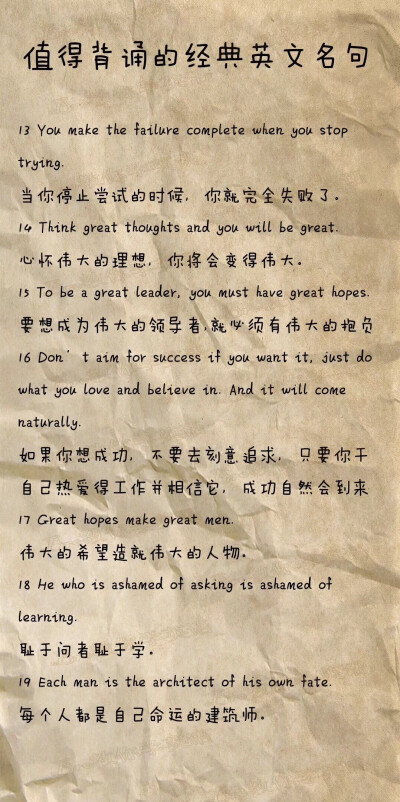 值得背诵的经典英文名句
13 You make the failure complete when you stop
trying.
当你停止尝试的时候, 你就完全失败了。
14 Think great thoughts and you will be great.
心怀伟大的理想, 你将会变得伟大。
15 To be a great leader, you must have great hopes.
要想成为伟大的领导者,就必须有伟大的抱负
16 Don't aim for success if you want it, just do
what you love and believe in. And it will come
naturally.
如果你想成功, 不要去刻意追求, 只要你干
自己热爱得工作并相信它, 成功自然会到来
17 Great hopes make great men.
伟大的希望造就伟大的人物。
18 He who is ashamed of asking is ashamed of
learning.
耻于问者耻于学。
19 Each man is the architect of his own fate.
每个人都是自己命运的建筑师。